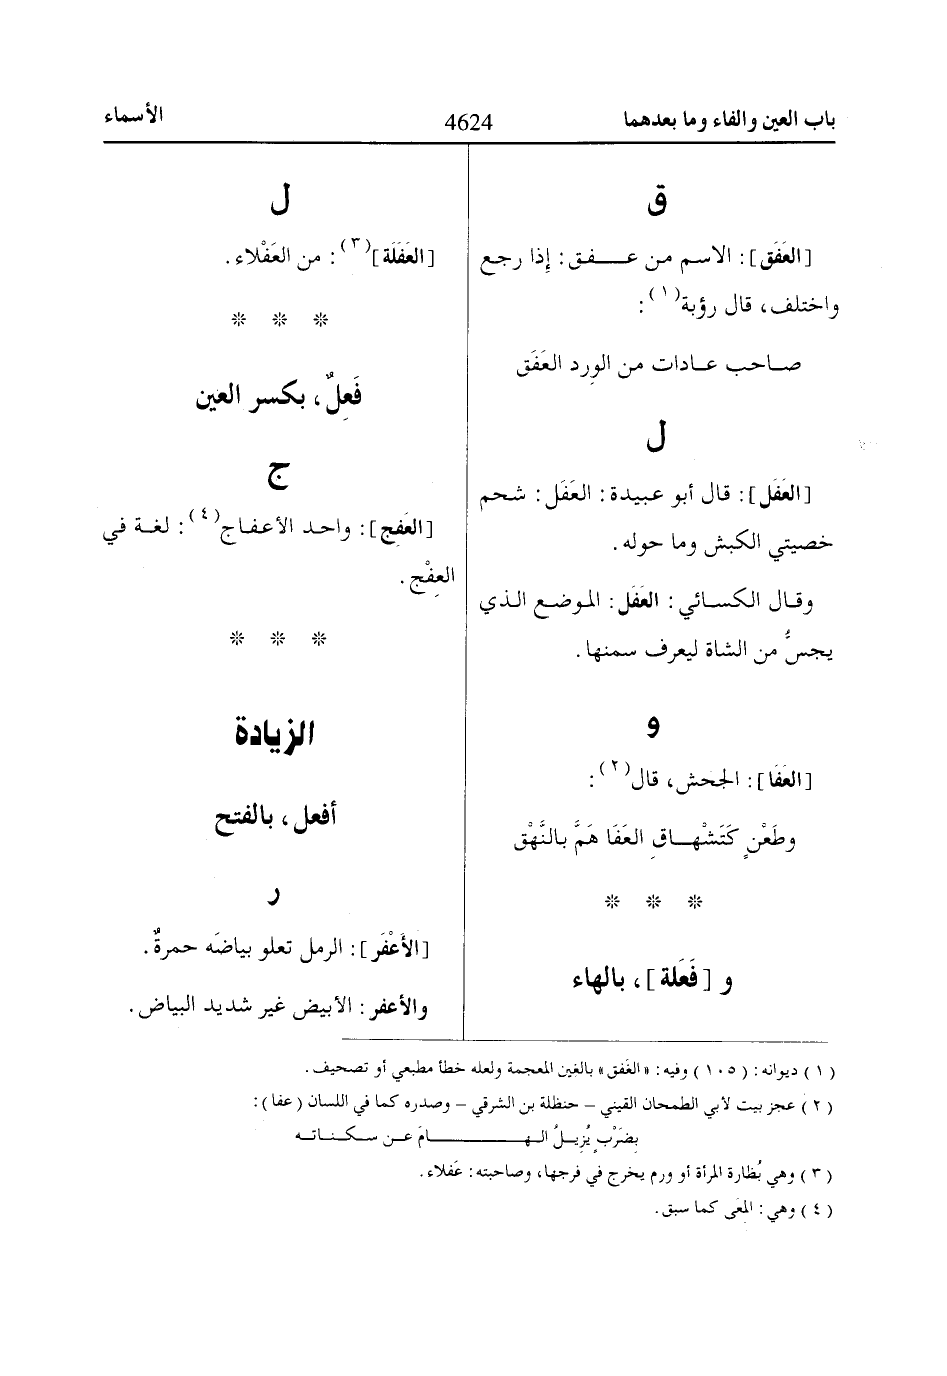 باب العين والفاء وما بعدهما
4624
الأسماء
ق
[العَفَق]: الاسم من عفق: إذا رجع
واختلف، قال رؤبة(١):
صاحب عادات من الورِد العَفَق
ل
[العَفَل]: قال أبو عبيدة: العَفَل: شحم
خصيتي الكبش وما حوله.
وقال الكسائي: العَفَل: الموضع الذي
يجسُّ من الشاة ليعرف سمنها.
و
[العَفَا]: الجحش، قال(٢):
وطَعْنٍ كَتَشْهاقِ العفا هَمَّ بالنَّهْق
* * *
و [فَعَلة]، بالهاء
ل
[العَفَلَة](٣): من العَفْلاء.
* * *
فَعِلٌ، بكسر العين
ج
[العَفِج]: واحد الأعفاج(٤): لغة في
العِفْج.
* * *
الزيادة
أفعل، بالفتح
ر
[الأَعْفَر]: الرمل تعلو بياضَه حمرةٌ.
والأعفر: الأبيض غير شديد البياض.
(١) ديوانه: (١٠٥) وفيه: «الغَفق» بالغين المعجمة ولعله خطأ مطبعي أو تصحيف.
(٢) عجز بيت لأبي الطمحان القيني – حنظلة بن الشرقي – وصدره كما في اللسان (عفا):
بِضَرْبٍ يُزِيلُ الهامَ عن سكناته
(٣) وهي بُظارة المرأة أو ورم يخرج في فرجها، وصاحبته: عَفلاء.
(٤) وهي: المِعَى كما سبق.